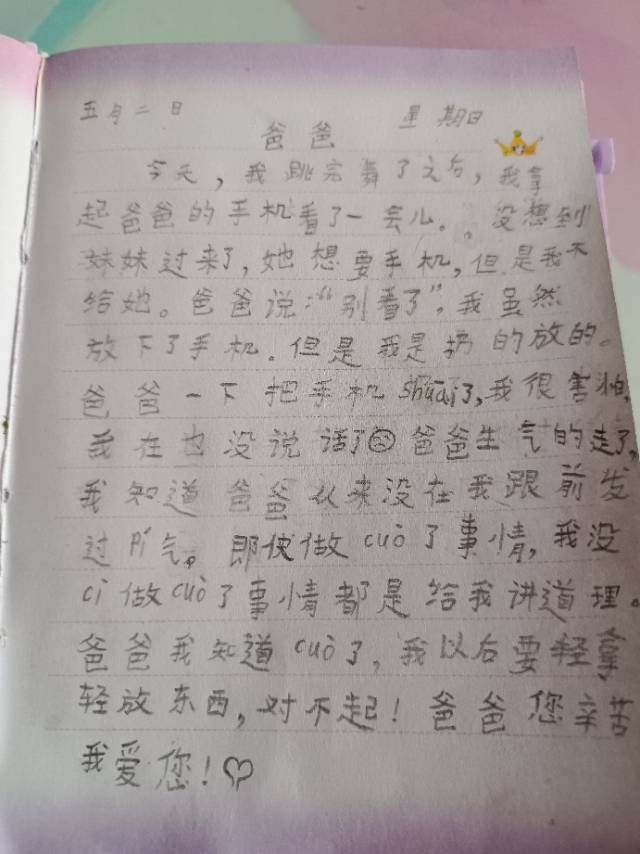 五月二日 星期日
爸爸
今天，我跳完舞了之后，我拿
起爸爸的手机看了一会儿。。没想到
妹妹过来了，她想要手机，但是我不
给她。爸爸说：“别看了”。我虽然
放下了手机。但是我是扔的放的。
爸爸一下把手机shuāi了，我很害怕，
我在也没说话了☹爸爸生气的走了，
我知道爸爸从来没在我跟前发
过pí气。即使做cuò了事情，我没
cì做cuò了事情都是给我讲道理。
爸爸我知道cuò了，我以后要轻拿
轻放东西，对不起！爸爸您辛苦
我爱您！♡